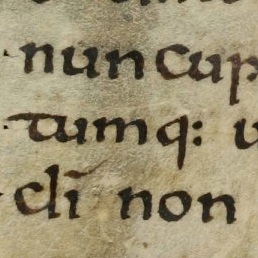 nuncup
tumq: u
cli̅ non